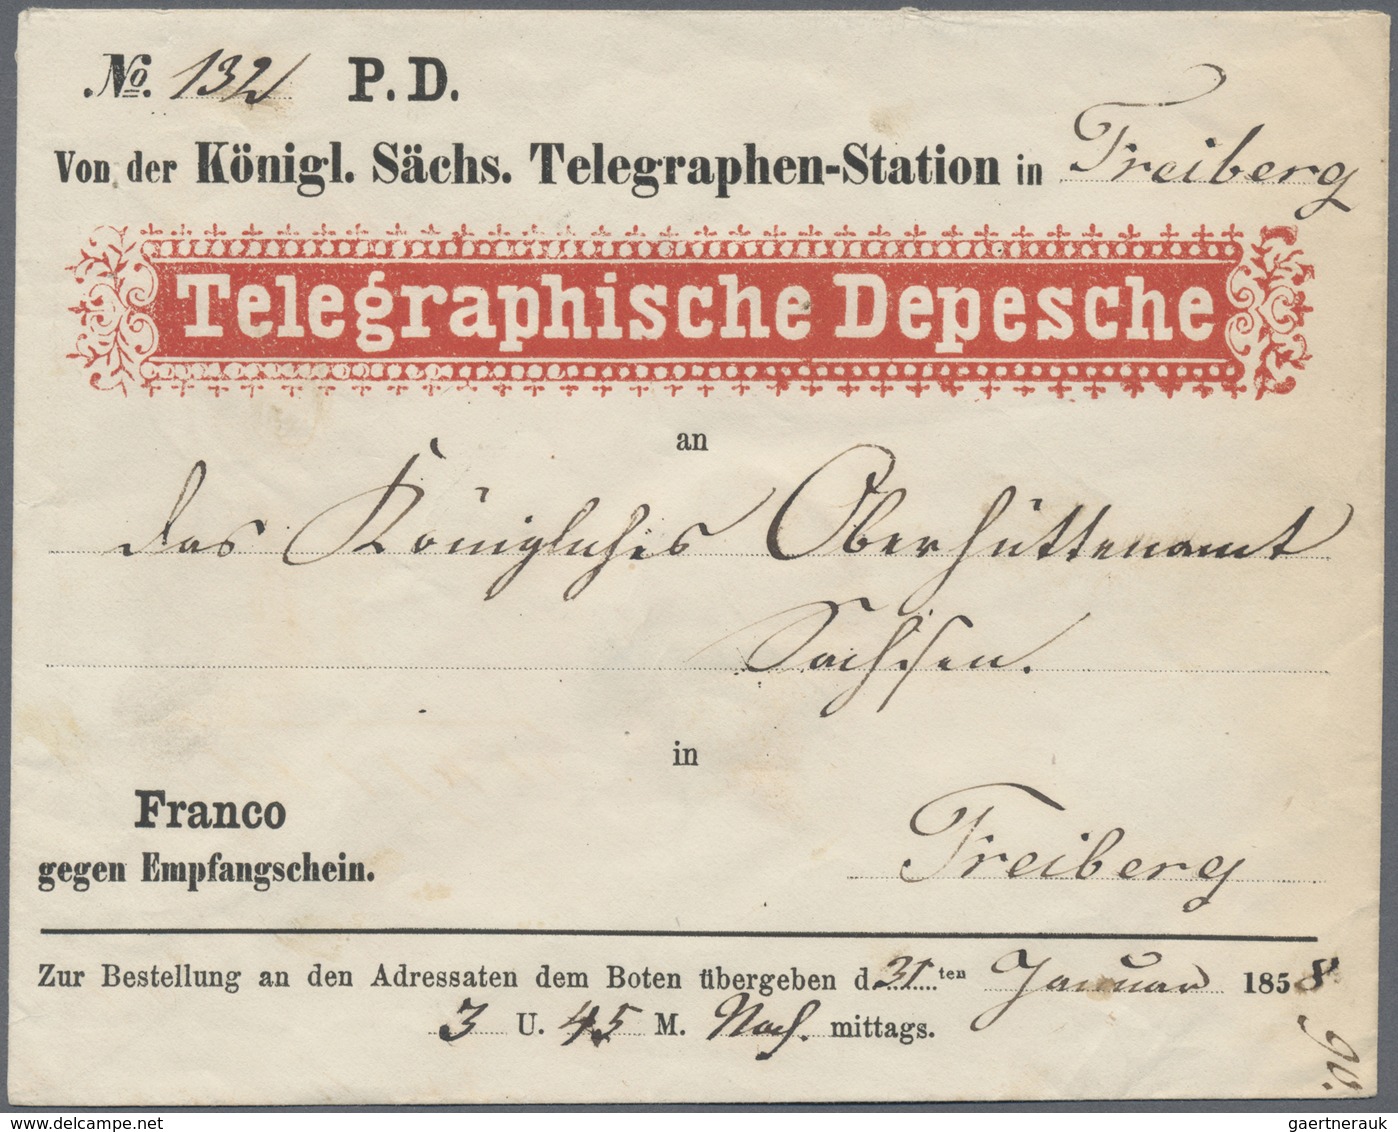 No. 132 P. D.
Von der Königl. Sächs. Telegraphen-Station in Freiberg
Telegraphische Depesche
an
das Königliches Oberhüttenamt
Sachsen.
in
Franco
gegen Empfangschein.
Freiberg
Zur Bestellung an den Adressaten dem Boten übergeben d. 31 ten Januar 1858.
3 U. 45 M. Nach. mittags.
delcampe.net
gaertnerauk